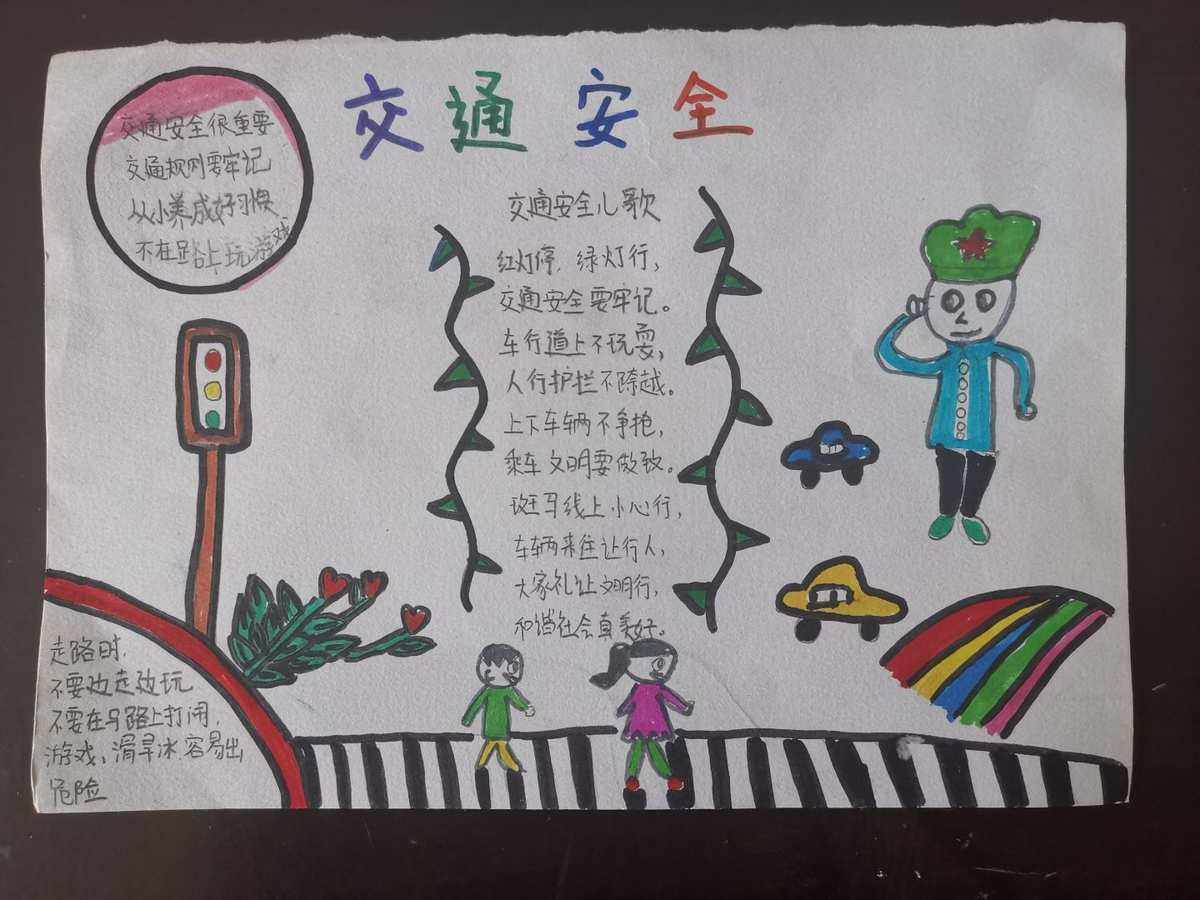 交通安全
交通安全很重要
交通规则要牢记
从小养成好习惯
不在路上玩游戏
交通安全儿歌
红灯停,绿灯行,
交通安全要牢记。
车行道上不玩耍,
人行护栏不跨越。
上下车辆不争抢,
乘车文明要做致。
斑马线上小心行,
车辆来往让行人,
大家礼让文明行,
和谐社会真美好。
走路时,
不要边走边玩
不要在马路上打闹,
游戏、滑旱冰容易出
危险